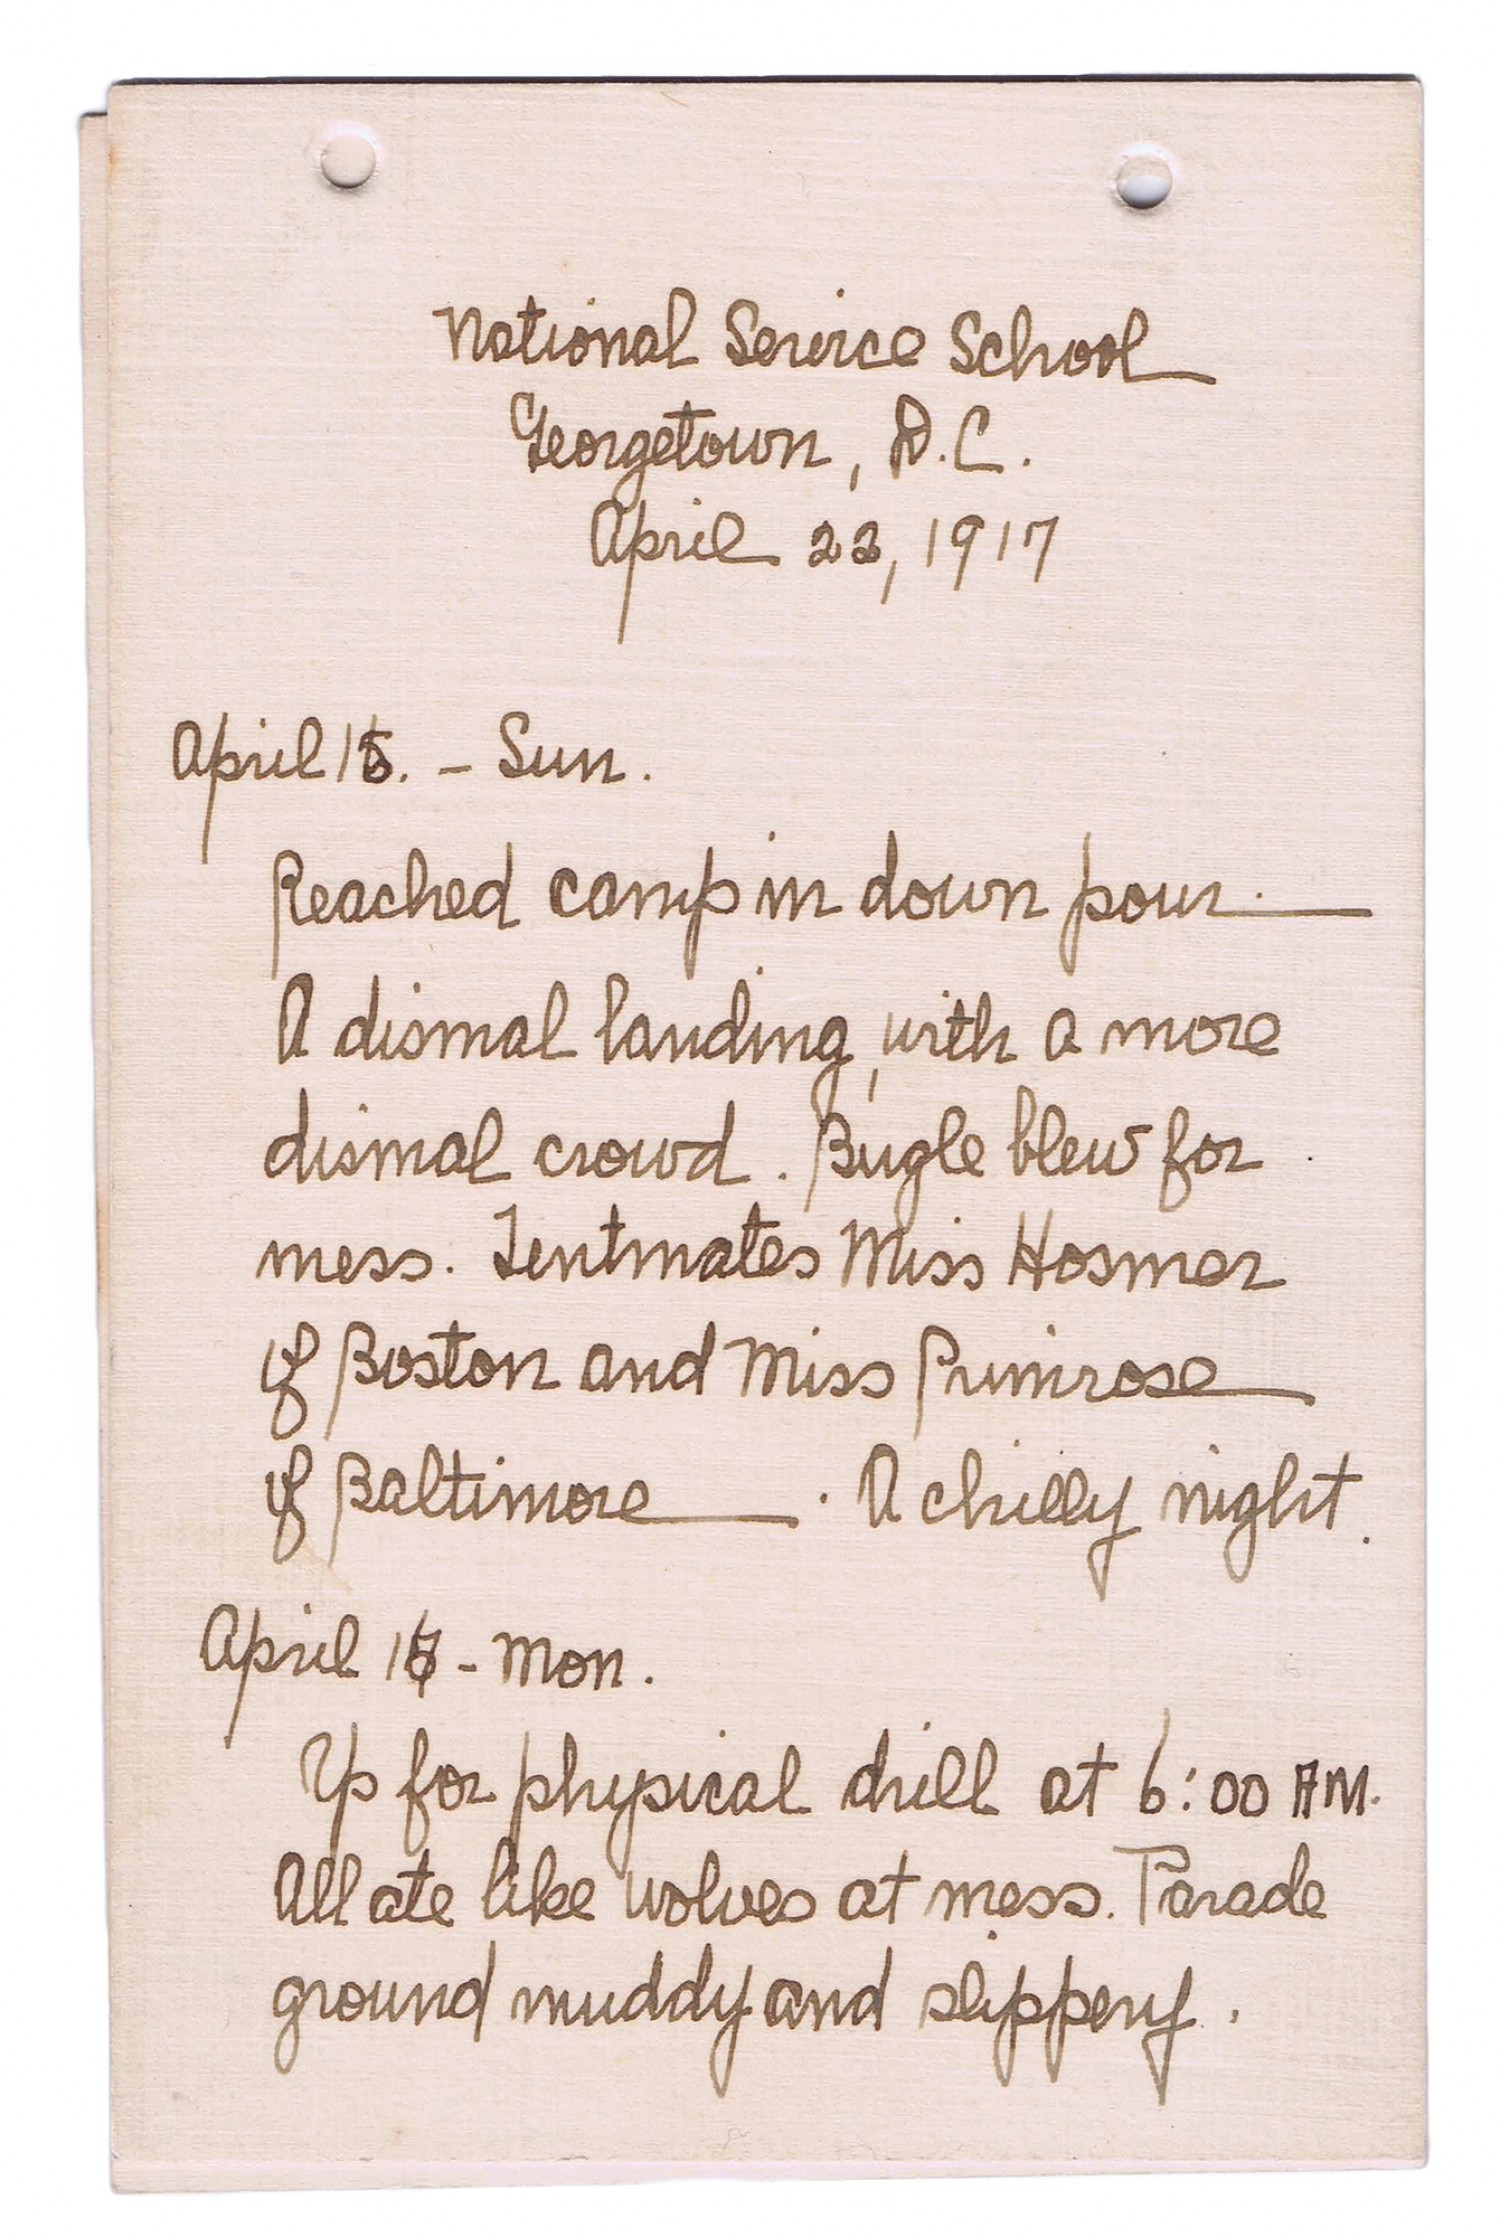 National Service School
Georgetown, D.C.
April 22, 1917
April 15. - Sun.
Reached camp in down pour.
A dismal landing, with a more
dismal crowd. Bugle blew for
mess. Tentmates Miss Hosmer
of Boston and Miss Primrose
of Baltimore. A chilly night.
April 16 - Mon.
Up for physical drill at 6:00 AM.
All ate like wolves at mess. Parade
ground muddy and slippery.